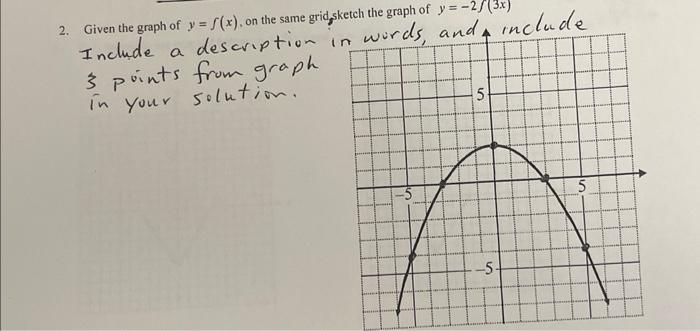 2. Given the graph of y = f(x), on the same grid, sketch the graph of y = -2f(3x)
Include a description in words, and include
3 points from graph
in your solution.
5
-5
5
-5